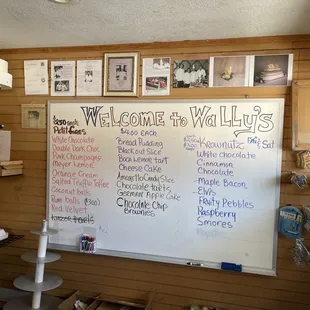 Welcome to Wally's
$2.50 EACH
Petit Fours
White Chocolate
Double Dark Choc
Pink Champagne
Meyer Lemon
Orange Creme
Salted Truffle Toffee
Coconut
Rum Balls
Red Velvet
$4.00 EACH
Bread Pudding
Black out Slice
Boca Lemon tart
Cheese Cake
Amaretto Candy Slice
Chocolate tarts
German Choc
Flourless Apple Cake
Chocolate Chip
Brownies
Kronutz
Fri
& Sat
White Chocolate
Cinnamon
Chocolate
Maple Bacon
Elvis
Fruity Pebbles
Raspberry
Smores